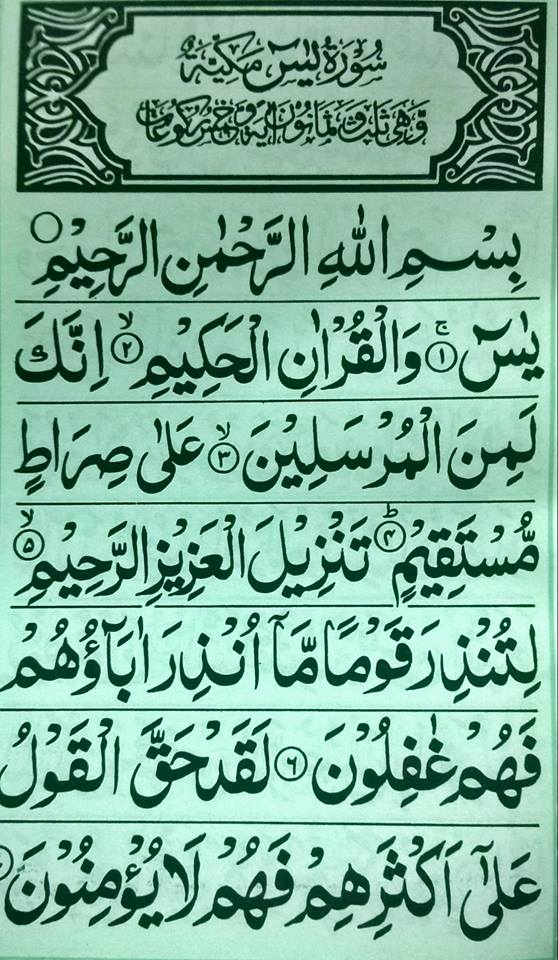 سُوْرَةُ يٰسٓ مَكِّيَّةٌ
وَّهِیَ ثَلٰثٌ وَّثَمَانُوْنَ اٰيَةً وَّخَمْسُ رُكُوْعَاتٍ
بِسْمِ اللّٰهِ الرَّحْمٰنِ الرَّحِيْمِ ○
يٰسٓ ۚ﴿۱﴾ وَالْقُرْاٰنِ الْحَكِيْمِ ۙ﴿۲﴾ اِنَّكَ
لَمِنَ الْمُرْسَلِيْنَ ۙ﴿۳﴾ عَلٰى صِرَاطٍ
مُّسْتَقِيْمٍ ؕ﴿۴﴾ تَنْزِيْلَ الْعَزِيْزِ الرَّحِيْمِ ۙ﴿۵﴾
لِتُنْذِرَ قَوْمًا مَّاۤ اُنْذِرَ اٰبَآؤُهُمْ
فَهُمْ غٰفِلُوْنَ ﴿۶﴾ لَقَدْ حَقَّ الْقَوْلُ
عَلٰۤى اَكْثَرِهِمْ فَهُمْ لَا يُؤْمِنُوْنَ